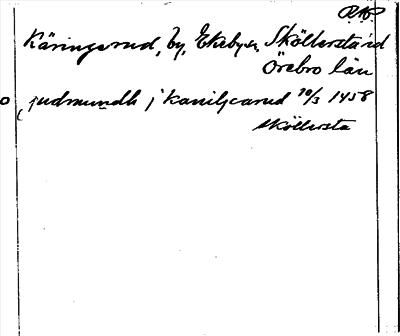 RAP
Käringsrud, by, Ekeby sn, Sköllersta hd
Örebro län
judmundh j kariljxarud 20/3 1458
Sköllersta